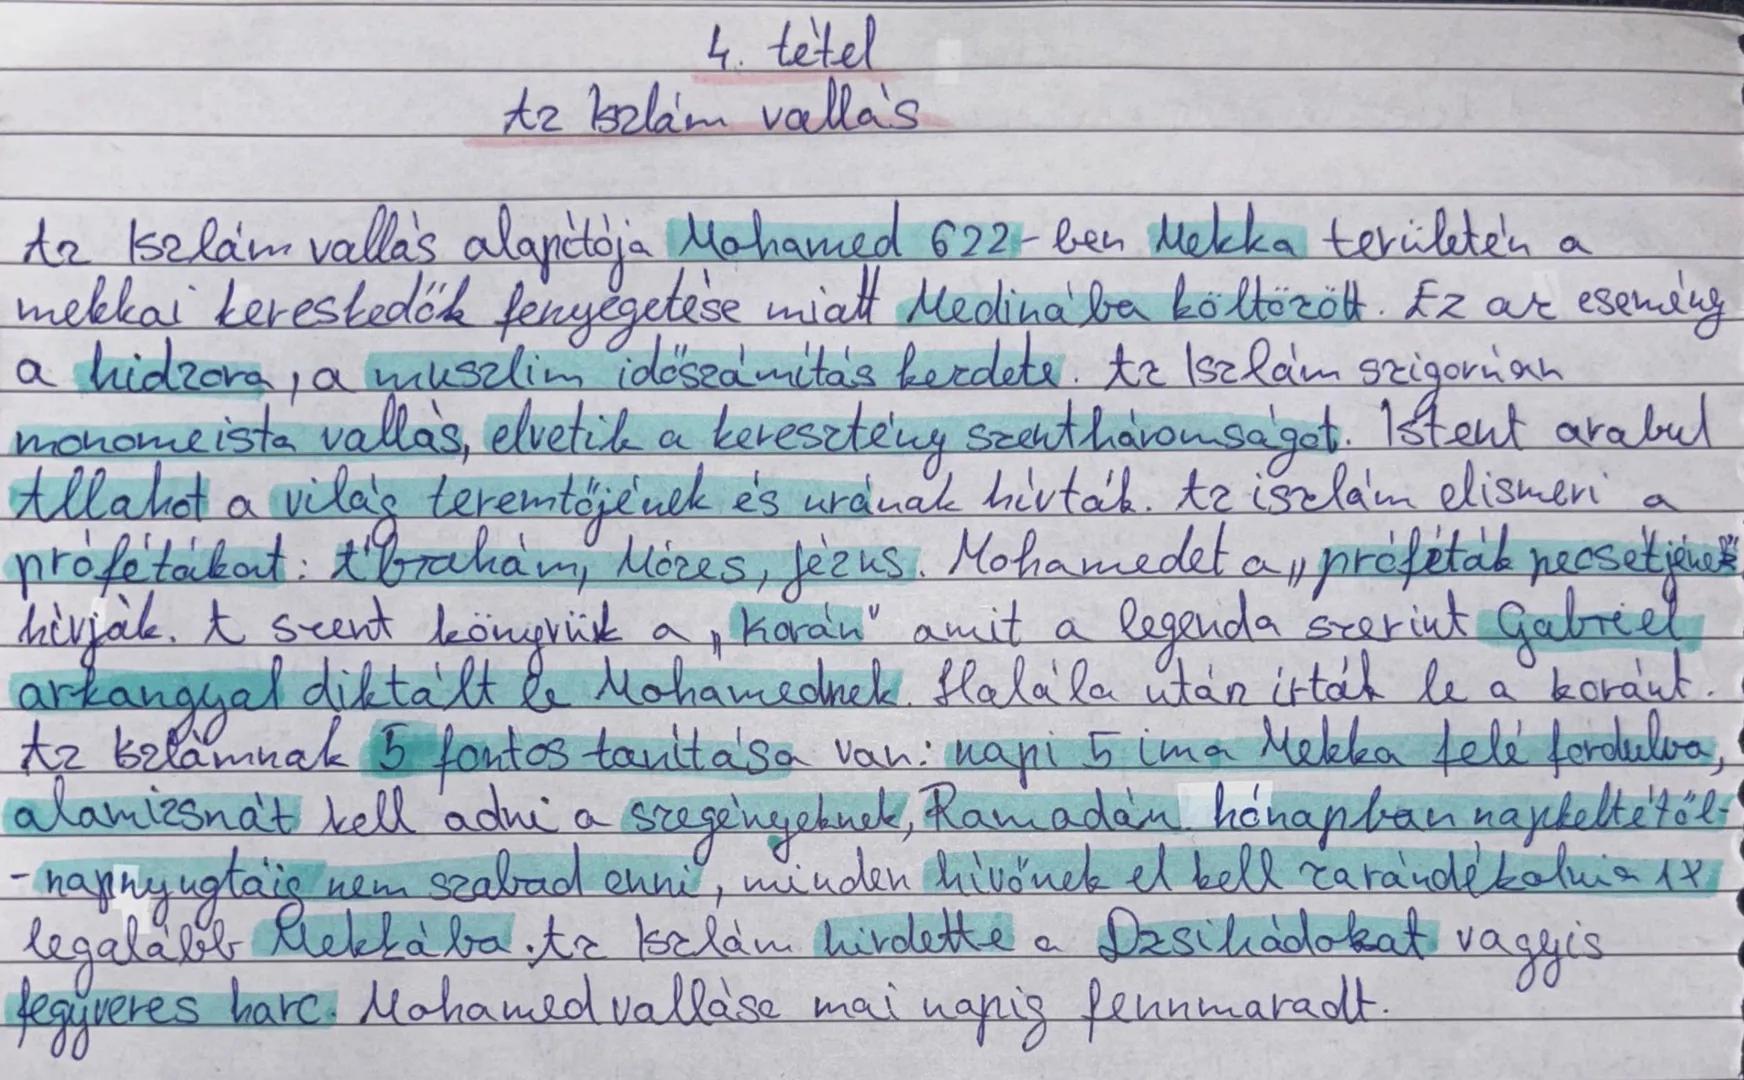 4. tétel
Az Iszlám vallás
Az Iszlám vallás alapítója Mohamed 622-ben Mekka területén a
mekkai kereskedők fenyegetése miatt Medinába költözött. Ez az esemény
a hidzsra, a muszlim időszámítás kezdete. Az Iszlám szigorúan
monomeista vallás, elvetik a keresztény szentháromságot. Istent arabul
Allahot a világ teremtőjének és urának hívták. Az iszlám elismeri a
prófétákat: Ábrahám, Mózes, Jézus. Mohamedet a „próféták pecsetjének"
hívják. A szent könyvük a „Korán" amit a legenda szerint Gabriel
arkangyal diktált le Mohamednek. Halála után írták le a koránt.
Az Iszlámnak 5 fontos tanítása van: napi 5 ima Mekka felé fordulva,
alamizsnát kell adni a szegényeknek, Ramadán hónapban napkeltétől-
-napnyugtáig nem szabad enni, minden hívőnek el kell zarándokolnia 1x
legalább Mekkába. Az Iszlám hirdette a Dzsihádokat vagyis
fegyveres harc. Mohamed vallása mai napig fennmaradt.